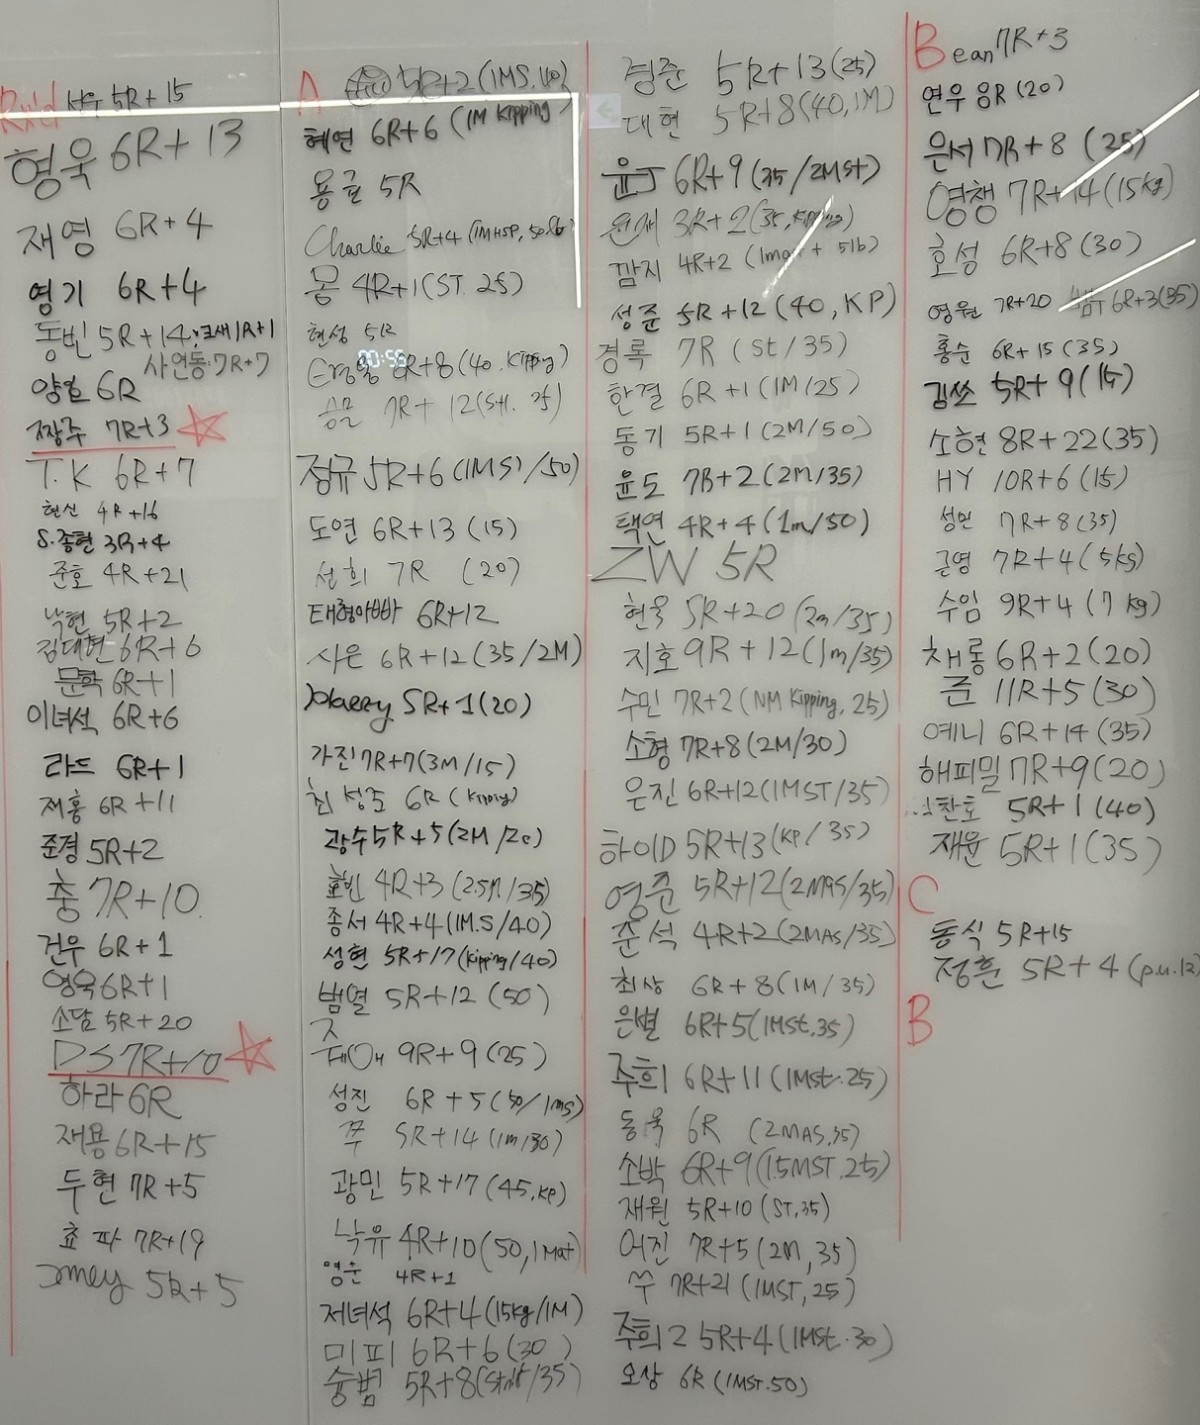 Rx'd
5R+15
형욱 6R+13
재영 6R+4
영기 6R+4
동빈 5R+14, 1R+1
사연동: 7R+7
양호 6R
짱주 7R+3
T.K 6R+7
현신 4R+16
S.종현 3R+4
준호 4R+21
낙현 5R+2
김대현 6R+6
문학 6R+1
이녀석 6R+6
라드 6R+1
재홍 6R+11
준경 5R+2
충 7R+10
건우 6R+1
영욱 6R+1
소담 5R+20
DS 7R+10
하라 6R
재용 6R+15
두현 7R+5
쵸파 7R+19
5R+5
A
5R+2 (1MS.40)
혜연 6R+6 (1M Kipping)
용글 5R
Charlie 5R+4 (1MHSP, 50lb)
몽 4R+1 (ST. 25)
현성 5R
R+8 (40. Kipping)
7R+12 (25)
정규 5R+6 (1MS)/50)
도연 6R+13 (15)
선희 7R (20)
태형아빠 6R+12
사은 6R+12 (35/2M)
Harry 5R+1 (20)
가진 7R+7 (3M/15)
최성조 6R (Kipping)
광수 5R+5 (2M/20)
효빈 4R+3 (2.5M/35)
종서 4R+4 (1M.S/40)
성현 5R+17 (Kipping/40)
범열 5R+12 (50)
9R+9 (25)
성진 6R+5 (50/1MS)
쭈 5R+14 (1m/30)
광민 5R+17 (45, KP)
낙유 4R+10 (50, 1Mat)
영운 4R+1
저녀석 6R+4 (15kg/1M)
미피 6R+6 (30)
승범 5R+8 (/35)
경준 5R+13 (25)
대현 5R+8 (40, 1M)
윤J 6R+9 (35/2MSt)
3R+2 (35, Kipping)
깜지 4R+2 (1mat + 5lb)
성준 5R+12 (40, KP)
경록 7R (St/35)
한결 6R+1 (1M/25)
동기 5R+1 (2M/50)
윤도 7R+2 (2m/35)
택연 4R+4 (1m/50)
ZW 5R
현욱 5R+20 (2m/35)
지호 9R+12 (1m/35)
수민 7R+2 (NM Kipping, 25)
소형 7R+8 (2M/30)
은진 6R+12 (1MST/35)
하이D 5R+13 (KP/35)
영준 5R+12 (2MAS/35)
준석 4R+2 (2MAS/35)
최상 6R+8 (1M/35)
은별 6R+5 (1MSt.35)
주희1 6R+11 (1MSt.25)
동욱 6R (2MAS.35)
소박 6R+9 (1.5MST.25)
재원 5R+10 (ST.35)
어진 7R+5 (2M, 35)
쑤 7R+21 (1MST, 25)
주희2 5R+4 (1MSt.30)
오상 6R (1MST.50)
B
ean 7R+3
연우 8R (20)
은서 7R+8 (25)
영챙 7R+14 (15kg)
호성 6R+8 (30)
영원 7R+20 6R+3 (35)
홍순 6R+15 (35)
김쏘 5R+9 (15)
소현 8R+22 (35)
HY 10R+6 (15)
성민 7R+8 (35)
근영 7R+4 (5kg)
수임 9R+4 (7kg)
채롱 6R+2 (20)
준 11R+5 (30)
예니 6R+14 (35)
해피밀 7R+9 (20)
찬호 5R+1 (40)
재윤 5R+1 (35)
C
동식 5R+15
정훈 5R+4 (p.u.12)
B